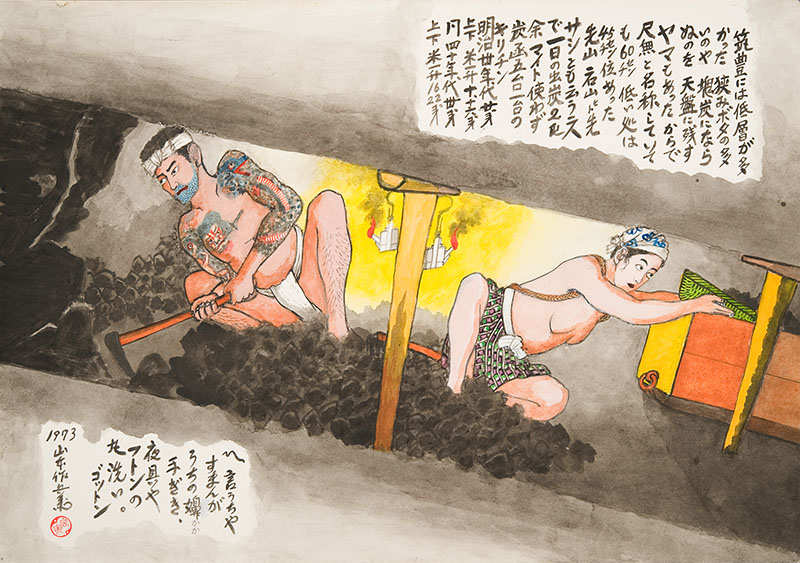 筑豊には低層が多
かった 狭みボタの多
いのや 塊炭になら
ぬのを 天盤に残す
ヤマもあった からで
尺無と名称していて
も60㌢ 低い処は
45㌢位あった
先山
サシとも云う
で一日の出炭
余 マイト使わず
炭函五合一台の
キリチン
明治卅年代
上下 米一升十
四十年代
上下 米一升16 22
〽 言うちゃ
すまんが
うちの嬶かか
手ぎき、
夜具や
フトンの
丸洗い。
ゴットン
1973
山本作兵衛